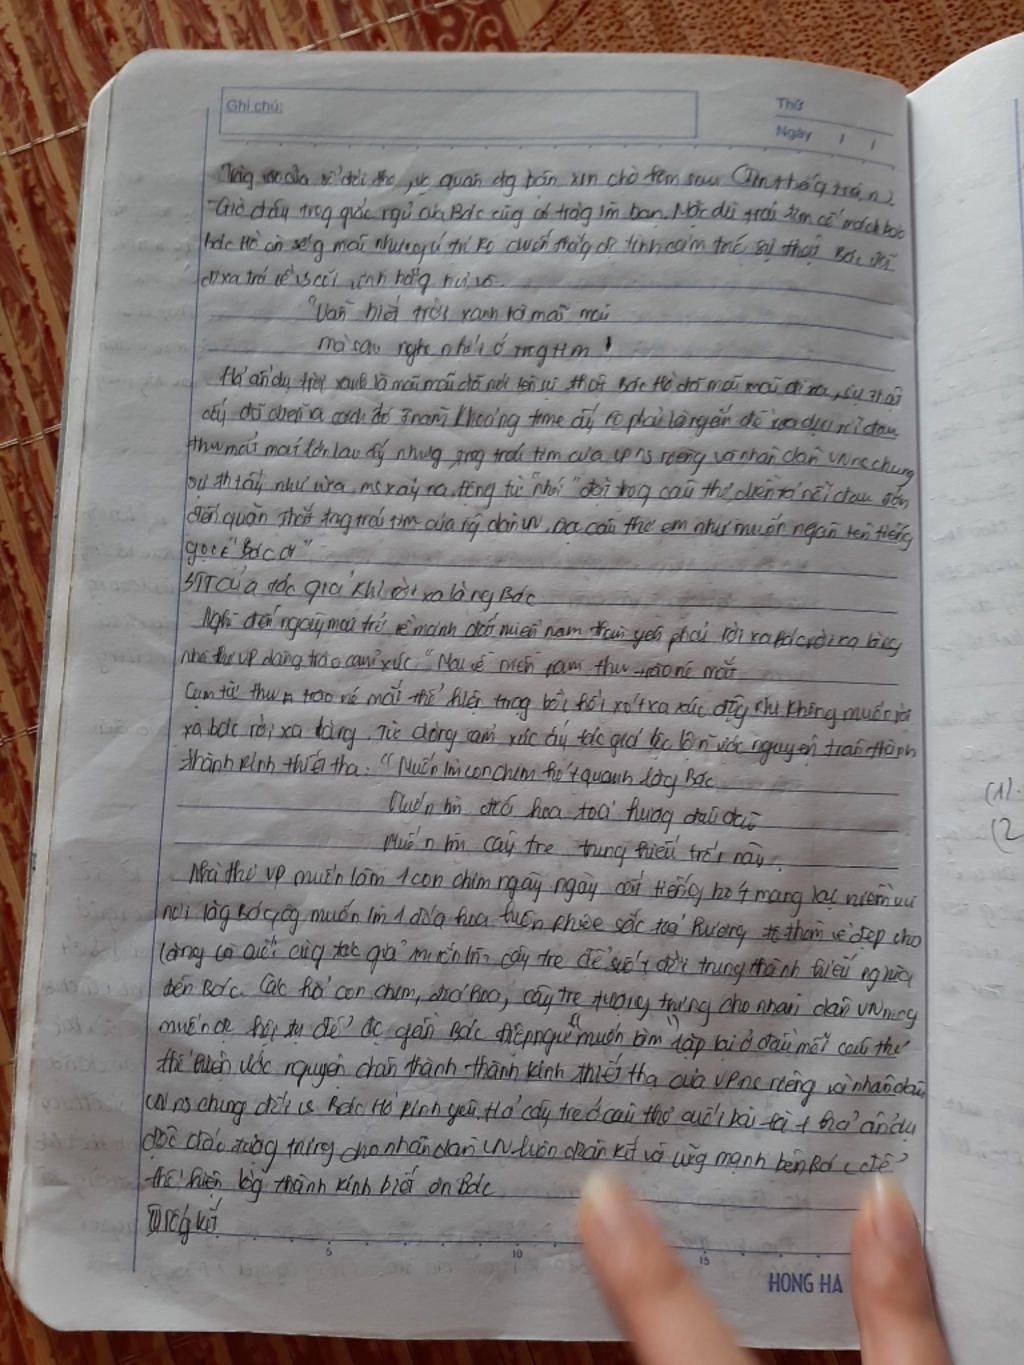 Ghi chú:
Thứ
Ngày / /
trăng sáng của vở đời thơ, vs quan đg bán xin chờ têm sau
Giờ đây trog giấc ngủ của Bác cũg có trăg làm bạn. Mặc dù trái tim
Bác Hồ còn sốg mãi nhưng lý trí ko chiến thắg đc tình cảm trc sự thật Bác đã
đi xa trở về vs cõi vĩnh hằg hư vô.
"Vẫn biết trời xanh là mãi mãi
mà sao nghe nhói ở trog tim
H/ả ẩn dụ trời xanh là mãi mãi đã nói lên sự thật Bác Hồ đã mãi mãi đi xa, sự thật
ấy đã diễn ra cách đó 7 năm khoảng time ấy ko phải là ngắn để xoa dịu nỗi đau
mất mát lớn lao ấy nhưng trog trái tim của VP ns riêng và nhân dân VN ns chung
sự thật ấy như vừa ms xảy ra. Động từ "nhói" đặt trog câu thơ diễn tả nỗi đau đớn
đến quặn thắt trog trái tim của ng dân VN. Đọc câu thơ em như muốn ngân lên tiếng
gọi "Bác ơi"
3, TT của tác giả khi rời xa lăng Bác
Nghĩ đến ngày mai trở về mảnh đất miền nam thân yêu phải rời xa Bác rời xa lăng
nhà thơ VP dâng trào cảm xúc. "Mai về miền nam thương trào nc mắt
Cụm từ thươg trào nc mắt thể hiện trạg bồi hồi xót xa xúc độg khi không muốn rời
xa bác rời xa lăng. Từ dòng cảm xúc ấy tác giả bộc lộ n ước nguyện chân thành
thành kính thiết tha: "Muốn làm con chim hót quanh lăng Bác
Muốn làm đoá hoa toả hương đâu đây
Muốn làm cây tre trung hiếu trốn này.
Nhà thơ VP muốn làm 1 con chim ngày ngày cất tiếng hót mang lại niềm vui
nơi lăg Bác, ôg muốn làm 1 đóa hoa luôn khoe sắc toả hương tô thêm vẻ đẹp cho
lăng và cuối cùg tác giả muốn làm cây tre để suốt đời trung thành hiếu nghĩa
bên Bác. Các h/ả con chim, đoá hoa, cây tre tượng trưng cho nhân dân VN
muốn đc hội tụ để đc gần Bác. Điệp ngữ "muốn làm" lặp lại ở đầu mỗi câu thơ
thể hiện ước nguyện chân thành thành kính thiết tha của VP ns riêng và nhân dân
VN ns chung đối vs Bác Hồ kính yêu. H/ả cây tre ở câu thơ cuối bài là 1 h/ả ẩn dụ
độc đáo tượng trưng cho nhân dân VN luôn đoàn kết và vữg mạnh bên Bác để
thể hiện lòg thành kính biết ơn Bác
III, Tổg kết
5 10 15
HONG HA
(1).
(2